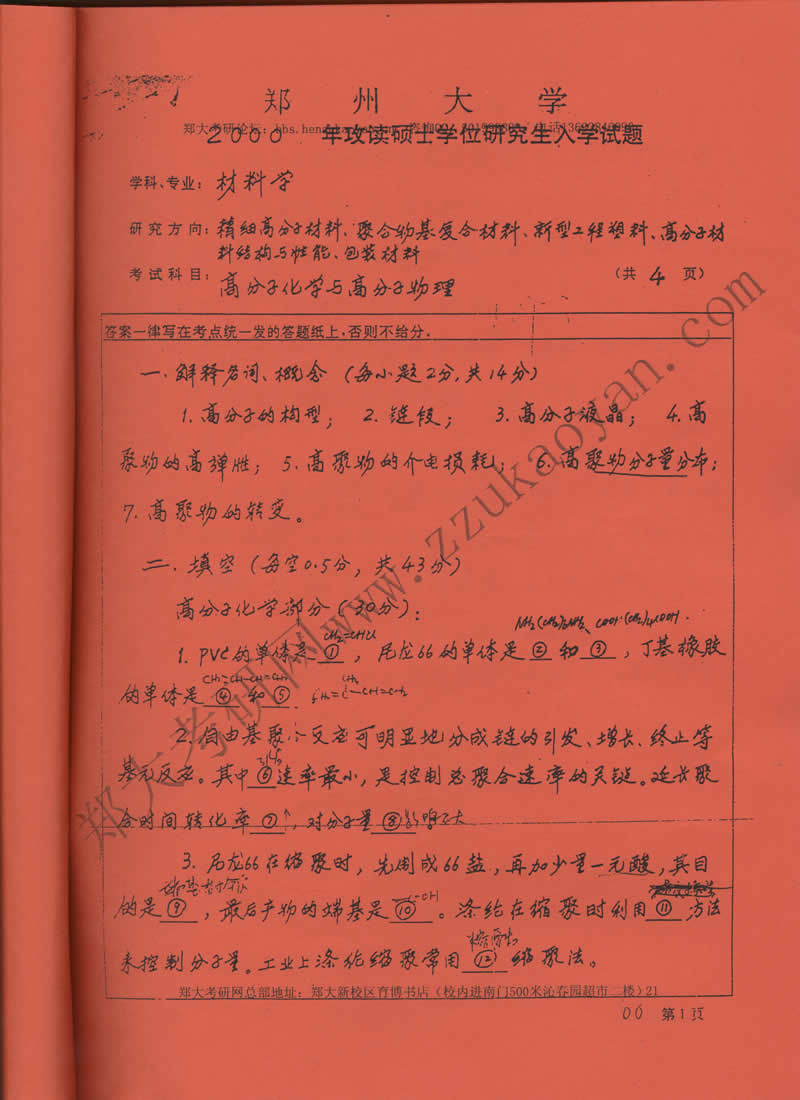 郑州大学
郑大考研论坛：bbs.
2000 年攻读硕士学位研究生入学试题
学科、专业：材料学
研究方向：精细高分子材料、聚合物基复合材料、新型工程塑料、高分子材
料结构与性能、包装材料
考试科目：高分子化学与高分子物理 （共 4 页）
答案一律写在考点统一发的答题纸上，否则不给分．
一．解释名词、概念（每小题2分，共14分）
1.高分子的构型； 2.链段； 3.高分子液晶； 4.高
聚物的高弹性；5.高聚物的介电损耗；6.高聚物分子量分布；
7.高聚物的转变。
二．填空（每空0.5分，共43分）
高分子化学部分（30分）：
CH2=CHCl
1. PVC的单体是①，尼龙66的单体是②和③，丁基橡胶
的单体是④和⑤.
2.自由基聚合反应可明显地分成链的引发、增长、终止等
基元反应。其中⑥速率最小，是控制总聚合速率的关键。延长聚
合时间转化率⑦↑，对分子量⑧影响不大
3.尼龙66在缩聚时，先制成66盐，再加少量一元酸，其目
的是⑨，最后产物的端基是⑩。涤纶在缩聚时利用⑪方法
来控制分子量。工业上涤纶缩聚常用⑫缩聚法。
郑大考研网总部地址：郑大新校区育博书店（校内进南门500米沁春园超市二楼）21
00 第1页
郑大考研网www.zzukaoyan.com